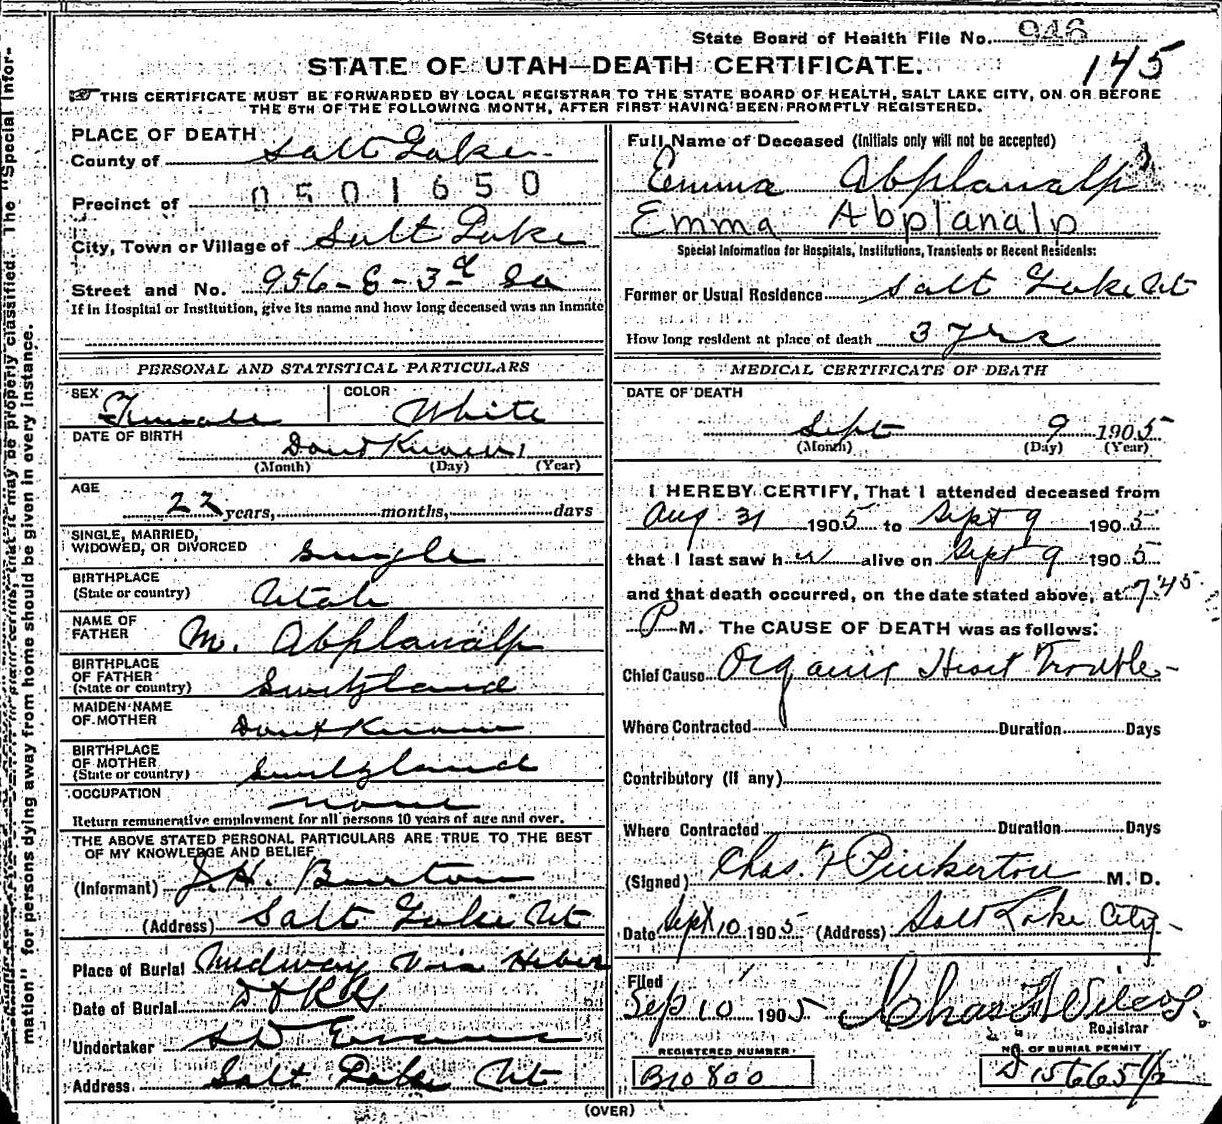 State Board of Health File No. 946
145
STATE OF UTAH—DEATH CERTIFICATE.
THIS CERTIFICATE MUST BE FORWARDED BY LOCAL REGISTRAR TO THE STATE BOARD OF HEALTH, SALT LAKE CITY, ON OR BEFORE
THE 5TH OF THE FOLLOWING MONTH, AFTER FIRST HAVING BEEN PROMPTLY REGISTERED.
PLACE OF DEATH
County of Salt Lake
0501650
Precinct of
City, Town or Village of Salt Lake
Street and No. 956-E-3d So
If in Hospital or Institution, give its name and how long deceased was an inmate
Full Name of Deceased (Initials only will not be accepted)
Emma Abplanalp
Emma Abplanalp
Special Information for Hospitals, Institutions, Transients or Recent Residents:
Former or Usual Residence Salt Lake Ut
How long resident at place of death 3 yrs
PERSONAL AND STATISTICAL PARTICULARS
SEX Female COLOR White
DATE OF BIRTH Dont Know
(Month) (Day) (Year)
AGE
22 years, months, days
SINGLE, MARRIED,
WIDOWED, OR DIVORCED Single
BIRTHPLACE
(State or country) Utah
NAME OF
FATHER M. Abplanalp
BIRTHPLACE
OF FATHER
(State or country) Switzland
MAIDEN NAME
OF MOTHER Dont Know
BIRTHPLACE
OF MOTHER
(State or country) Switzland
OCCUPATION none
Return remunerative employment for all persons 10 years of age and over.
THE ABOVE STATED PERSONAL PARTICULARS ARE TRUE TO THE BEST
OF MY KNOWLEDGE AND BELIEF
(Informant) J. H. Burton
(Address) Salt Lake Ut
Place of Burial Midway Via Heber
Date of Burial
Undertaker S D Evans
Address Salt Lake Ut
MEDICAL CERTIFICATE OF DEATH
DATE OF DEATH
Sept 9 1905
(Month) (Day) (Year)
I HEREBY CERTIFY, That I attended deceased from
Aug 31 1905 to Sept 9 1905
that I last saw her alive on Sept 9 1905
and that death occurred, on the date stated above, at 7 45
P M. The CAUSE OF DEATH was as follows:
Chief Cause Organic Heart Trouble
Where Contracted Duration Days
Contributory (if any)
Where Contracted Duration Days
(Signed) Chas. F Pinkerton M. D.
Date Sept 10 1905 (Address) Salt Lake City
Filed
Sep 10 1905 Chas Wilcox
Registrar
REGISTERED NUMBER
B10800
NO. OF BURIAL PERMIT
D 15665 1/2
(OVER)
The "Special Infor-
mation" for persons dying away from home should be given in every instance.